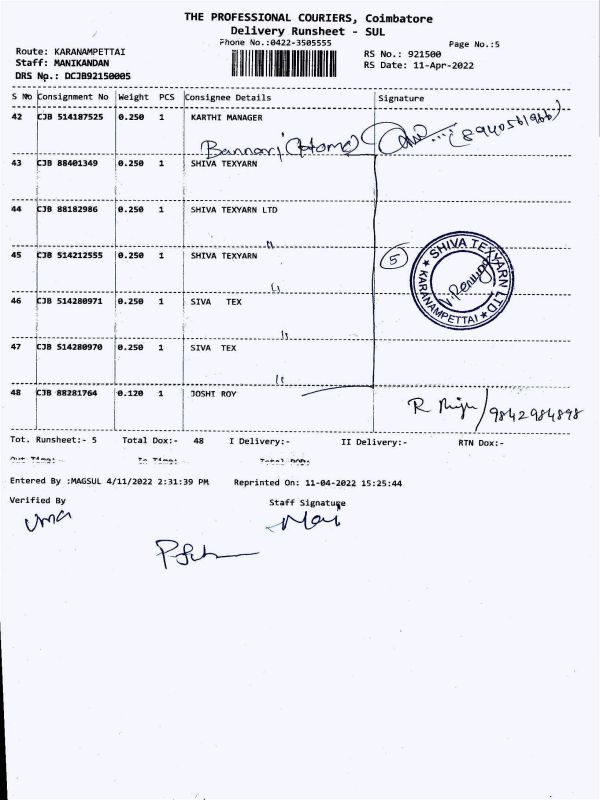 THE PROFESSIONAL COURIERS, Coimbatore
Delivery Runsheet - SUL
Phone No.:0422-3505555
Page No.:5
Route: KARANAMPETTAI
RS No.: 921500
Staff: MANIKANDAN
RS Date: 11-Apr-2022
DRS No.: DCJB92150005
S No Consignment No Weight PCS Consignee Details Signature
42 CJB 514187525 0.250 1 KARTHI MANAGER
8940561966)
43 CJB 88401349 0.250 1 SHIVA TEXYARN
44 CJB 88182986 0.250 1 SHIVA TEXYARN LTD
"
45 CJB 514212555 0.250 1 SHIVA TEXYARN
5
SHIVA TEXYARN LTD
KARANAMPETTAI
"
46 CJB 514280971 0.250 1 SIVA TEX
"
47 CJB 514280970 0.250 1 SIVA TEX
"
48 CJB 88281764 0.120 1 JOSHI ROY
R /9842984898
Tot. Runsheet:- 5 Total Dox:- 48 I Delivery:- II Delivery:- RTN Dox:-
Out Time: In Time: Total POD:
Entered By :MAGSUL 4/11/2022 2:31:39 PM Reprinted On: 11-04-2022 15:25:44
Verified By Staff Signature
Uma Mani